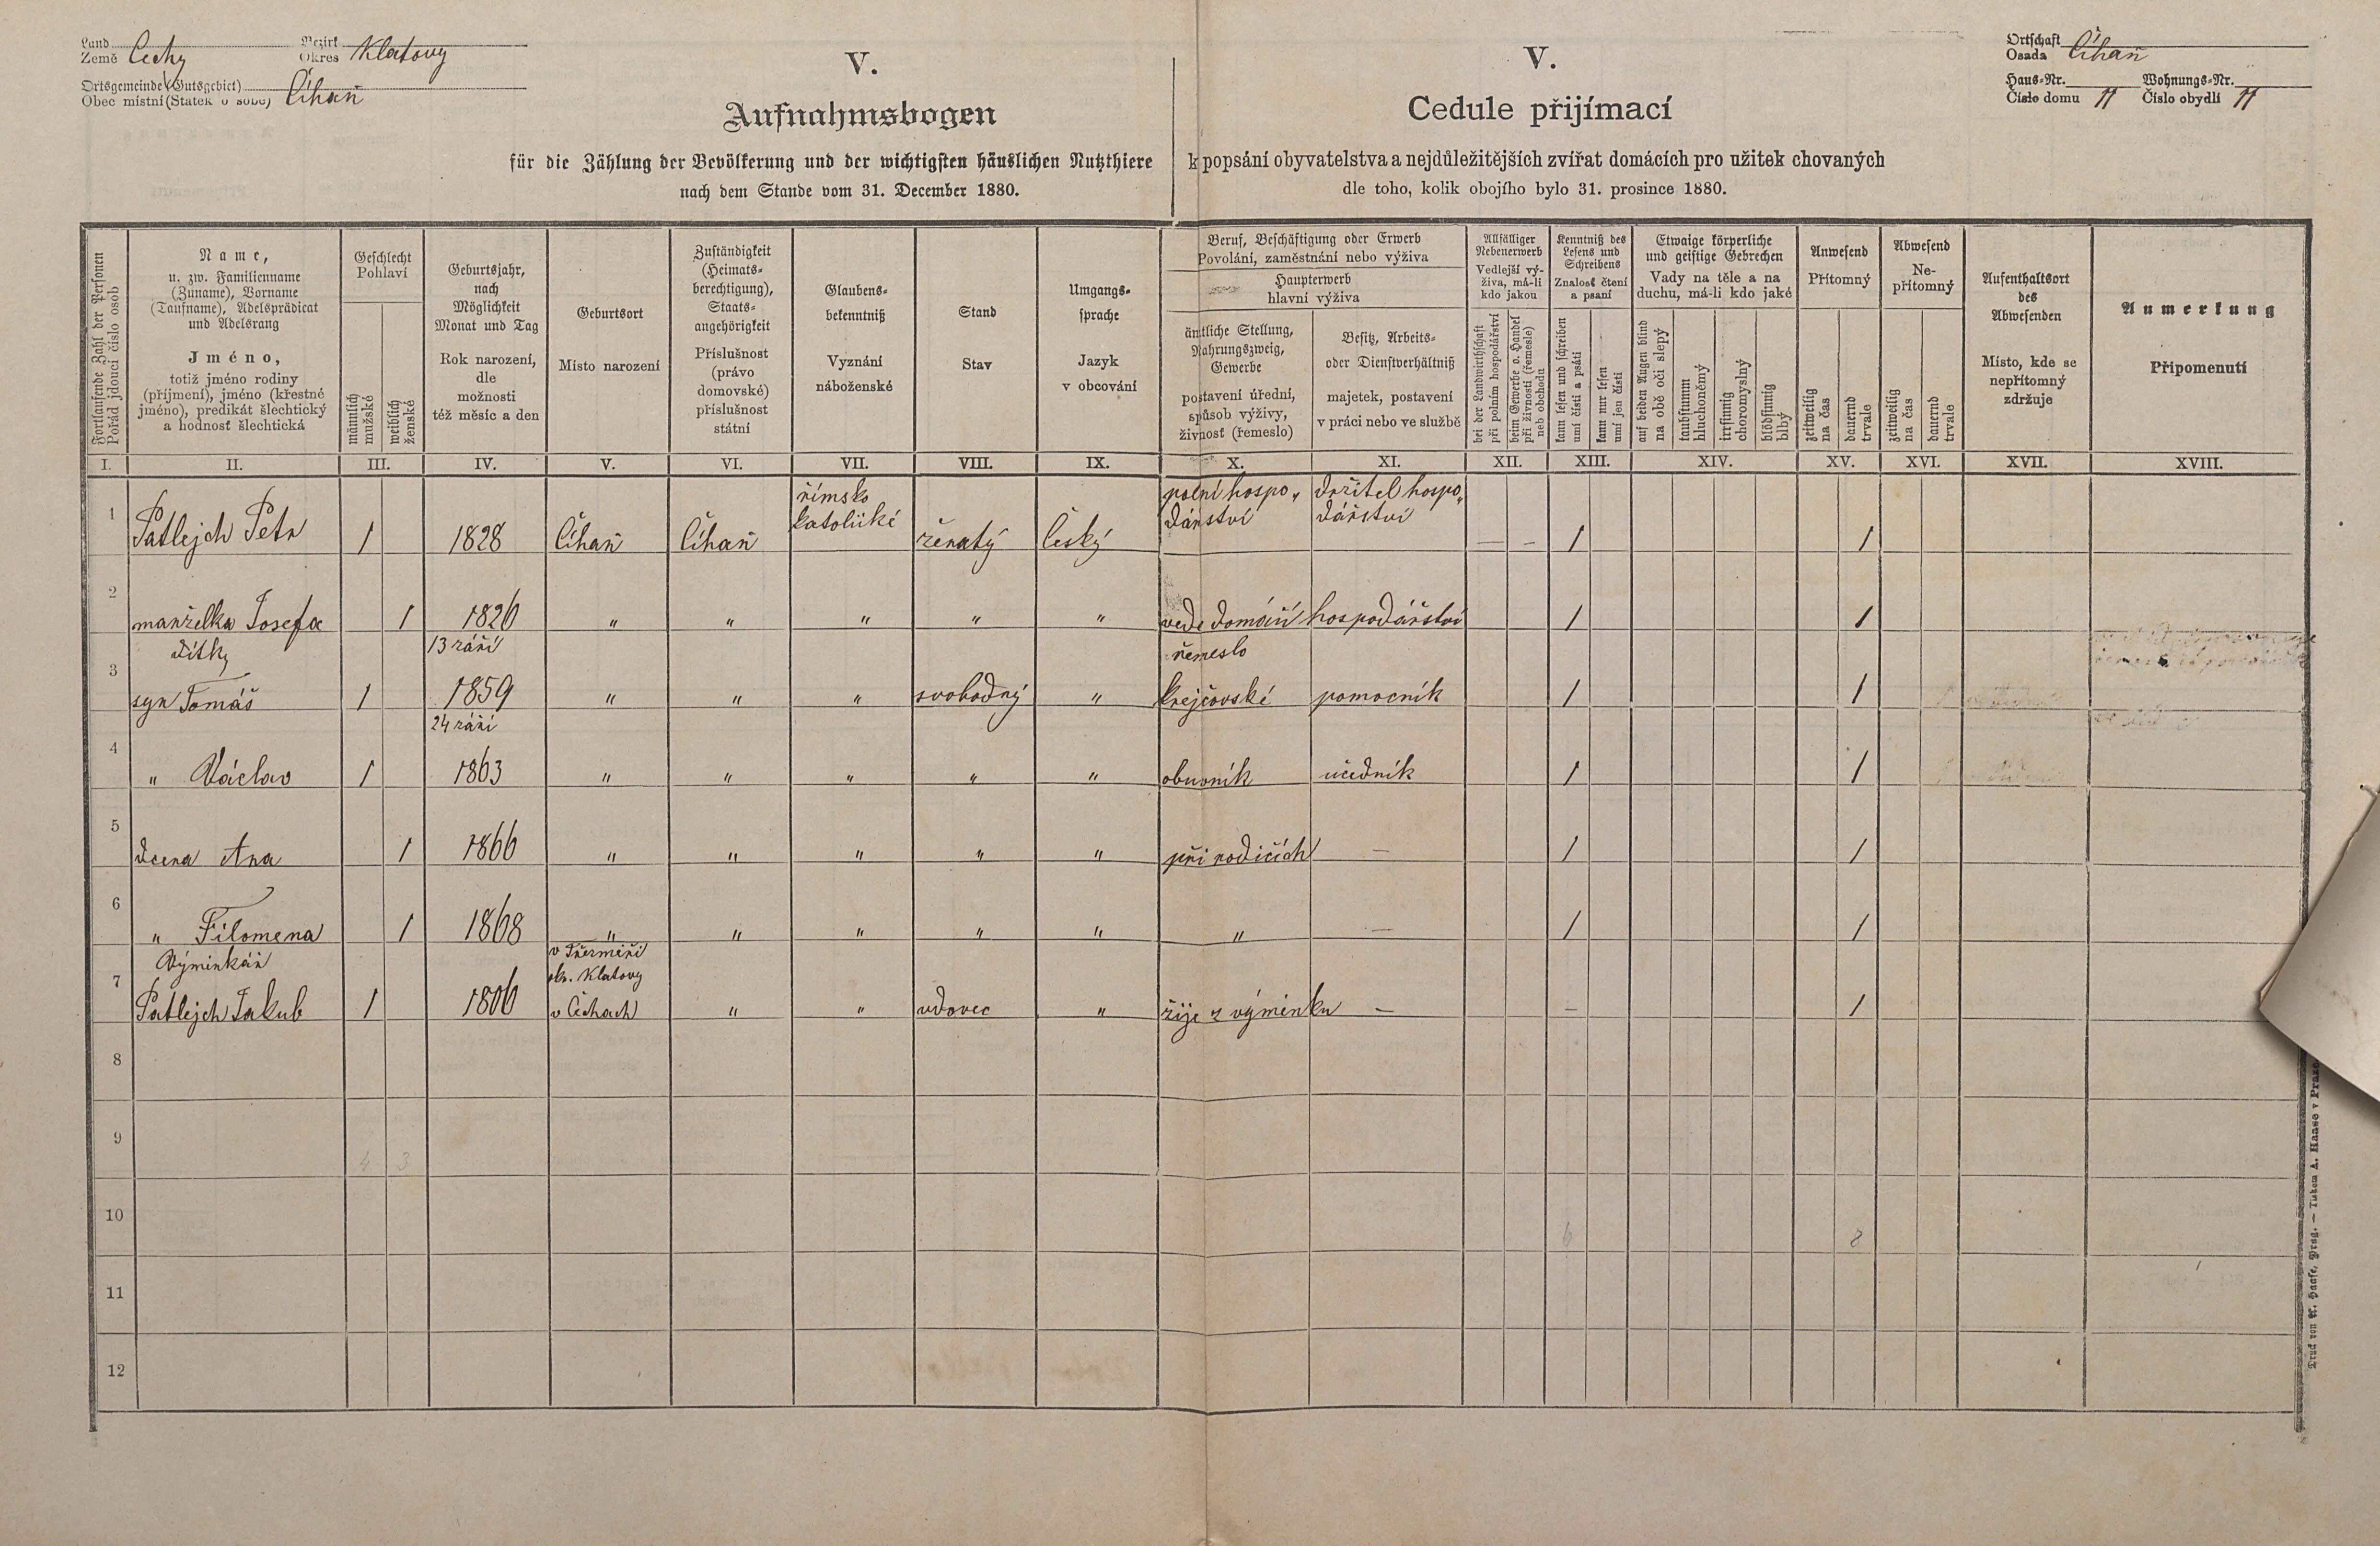 Land Bezirk
Země Čechy Okres Klatovy
Ortsgemeinde (Gutsgebiet)
Obec místní (Statek o sobě) Číhaň
V.
Aufnahmsbogen
für die Zählung der Bevölkerung und der wichtigsten häuslichen Nutzthiere
nach dem Stande vom 31. December 1880.
V.
Cedule přijímací
k popsání obyvatelstva a nejdůležitějších zvířat domácích pro užitek chovaných
dle toho, kolik obojího bylo 31. prosince 1880.
Ortschaft
Osada Číhaň
Haus-Nr. Wohnungs-Nr.
Číslo domu 11 Číslo obydlí 11
Fortlaufende Zahl der Personen
Pořád jdoucí číslo osob
Name,
u. zw. Familienname
(Zuname), Vorname
(Taufname), Adelsprädicat
und Adelsrang
Jméno,
totiž jméno rodiny
(příjmení), jméno (křestné
jméno), predikát šlechtický
a hodnosť šlechtická
Geschlecht
Pohlaví
männlich
mužské
weiblich
ženské
Geburtsjahr,
nach
Möglichkeit
Monat und Tag
Rok narození,
dle
možnosti
též měsíc a den
Geburtsort
Místo narození
Zuständigkeit
(Heimats-
berechtigung),
Staats-
angehörigkeit
Příslušnost
(právo
domovské)
příslušnost
státní
Glaubens-
bekenntniß
Vyznání
náboženské
Stand
Stav
Umgangs-
sprache
Jazyk
v obcování
Beruf, Beschäftigung oder Erwerb
Povolání, zaměstnání nebo výživa
Haupterwerb
hlavní výživa
ämtliche Stellung,
Nahrungszweig,
Gewerbe
postavení úřední,
spůsob výživy,
živnosť (řemeslo)
Besitz, Arbeits-
oder Dienstverhältniß
majetek, postavení
v práci nebo ve službě
Allfälliger
Nebenerwerb
Vedlejší vý-
živa, má-li
kdo jakou
bei der Landwirthschaft
při polním hospodářství
beim Gewerbe o. Handel
při živnosti (řemesle)
neb obchodu
Kenntniß des
Lesens und
Schreibens
Znalosť čtení
a psaní
kann lesen und schreiben
umí čísti a psáti
kann nur lesen
umí jen čísti
Etwaige körperliche
und geistige Gebrechen
Vady na těle a na
duchu, má-li kdo jaké
auf beiden Augen blind
na obě oči slepý
taubstumm
hluchoněmý
irrsinnig
choromyslný
blödsinnig
blbý
Anwesend
Přítomný
zeitweilig
na čas
dauernd
trvale
Abwesend
Ne-
přítomný
zeitweilig
na čas
dauernd
trvale
Aufenthaltsort
des
Abwesenden
Místo, kde se
nepřítomný
zdržuje
Anmerkung
Připomenutí
I. II. III. IV. V. VI. VII. VIII. IX. X. XI. XII. XIII. XIV. XV. XVI. XVII. XVIII.
římsko polní hospo„ držitel hospo„
katolické dářství dářství
1 Patlejch Petr 1 1828 Číhaň Číhaň ženatý Český — – 1 1
2 manželka Josefa 1 1826 „ „ „ „ „ vede domácí hospodářství 1 1
dítky 13 září řemeslo
3 syn Tomáš 1 1859 „ „ „ svobodný „ krejčovské pomocník 1 1
24 září
4 „ Václav 1 1863 „ „ „ „ „ obuvník učedník 1 1
5 dcera Ana 1 1866 „ „ „ „ „ při rodičích — 1 1
6 „ Filomena 1 1868 „ „ „ „ „ „ — 1 1
Výminkář
okr. Klatovy
7 Patlejch Jakub 1 1806 v Čechach „ „ vdovec „ žije z výminku — – 1
8
9
4 3
10
6 8
11
12
Druck von A. Haase, Prag. — Tiskem A. Haase v Praze